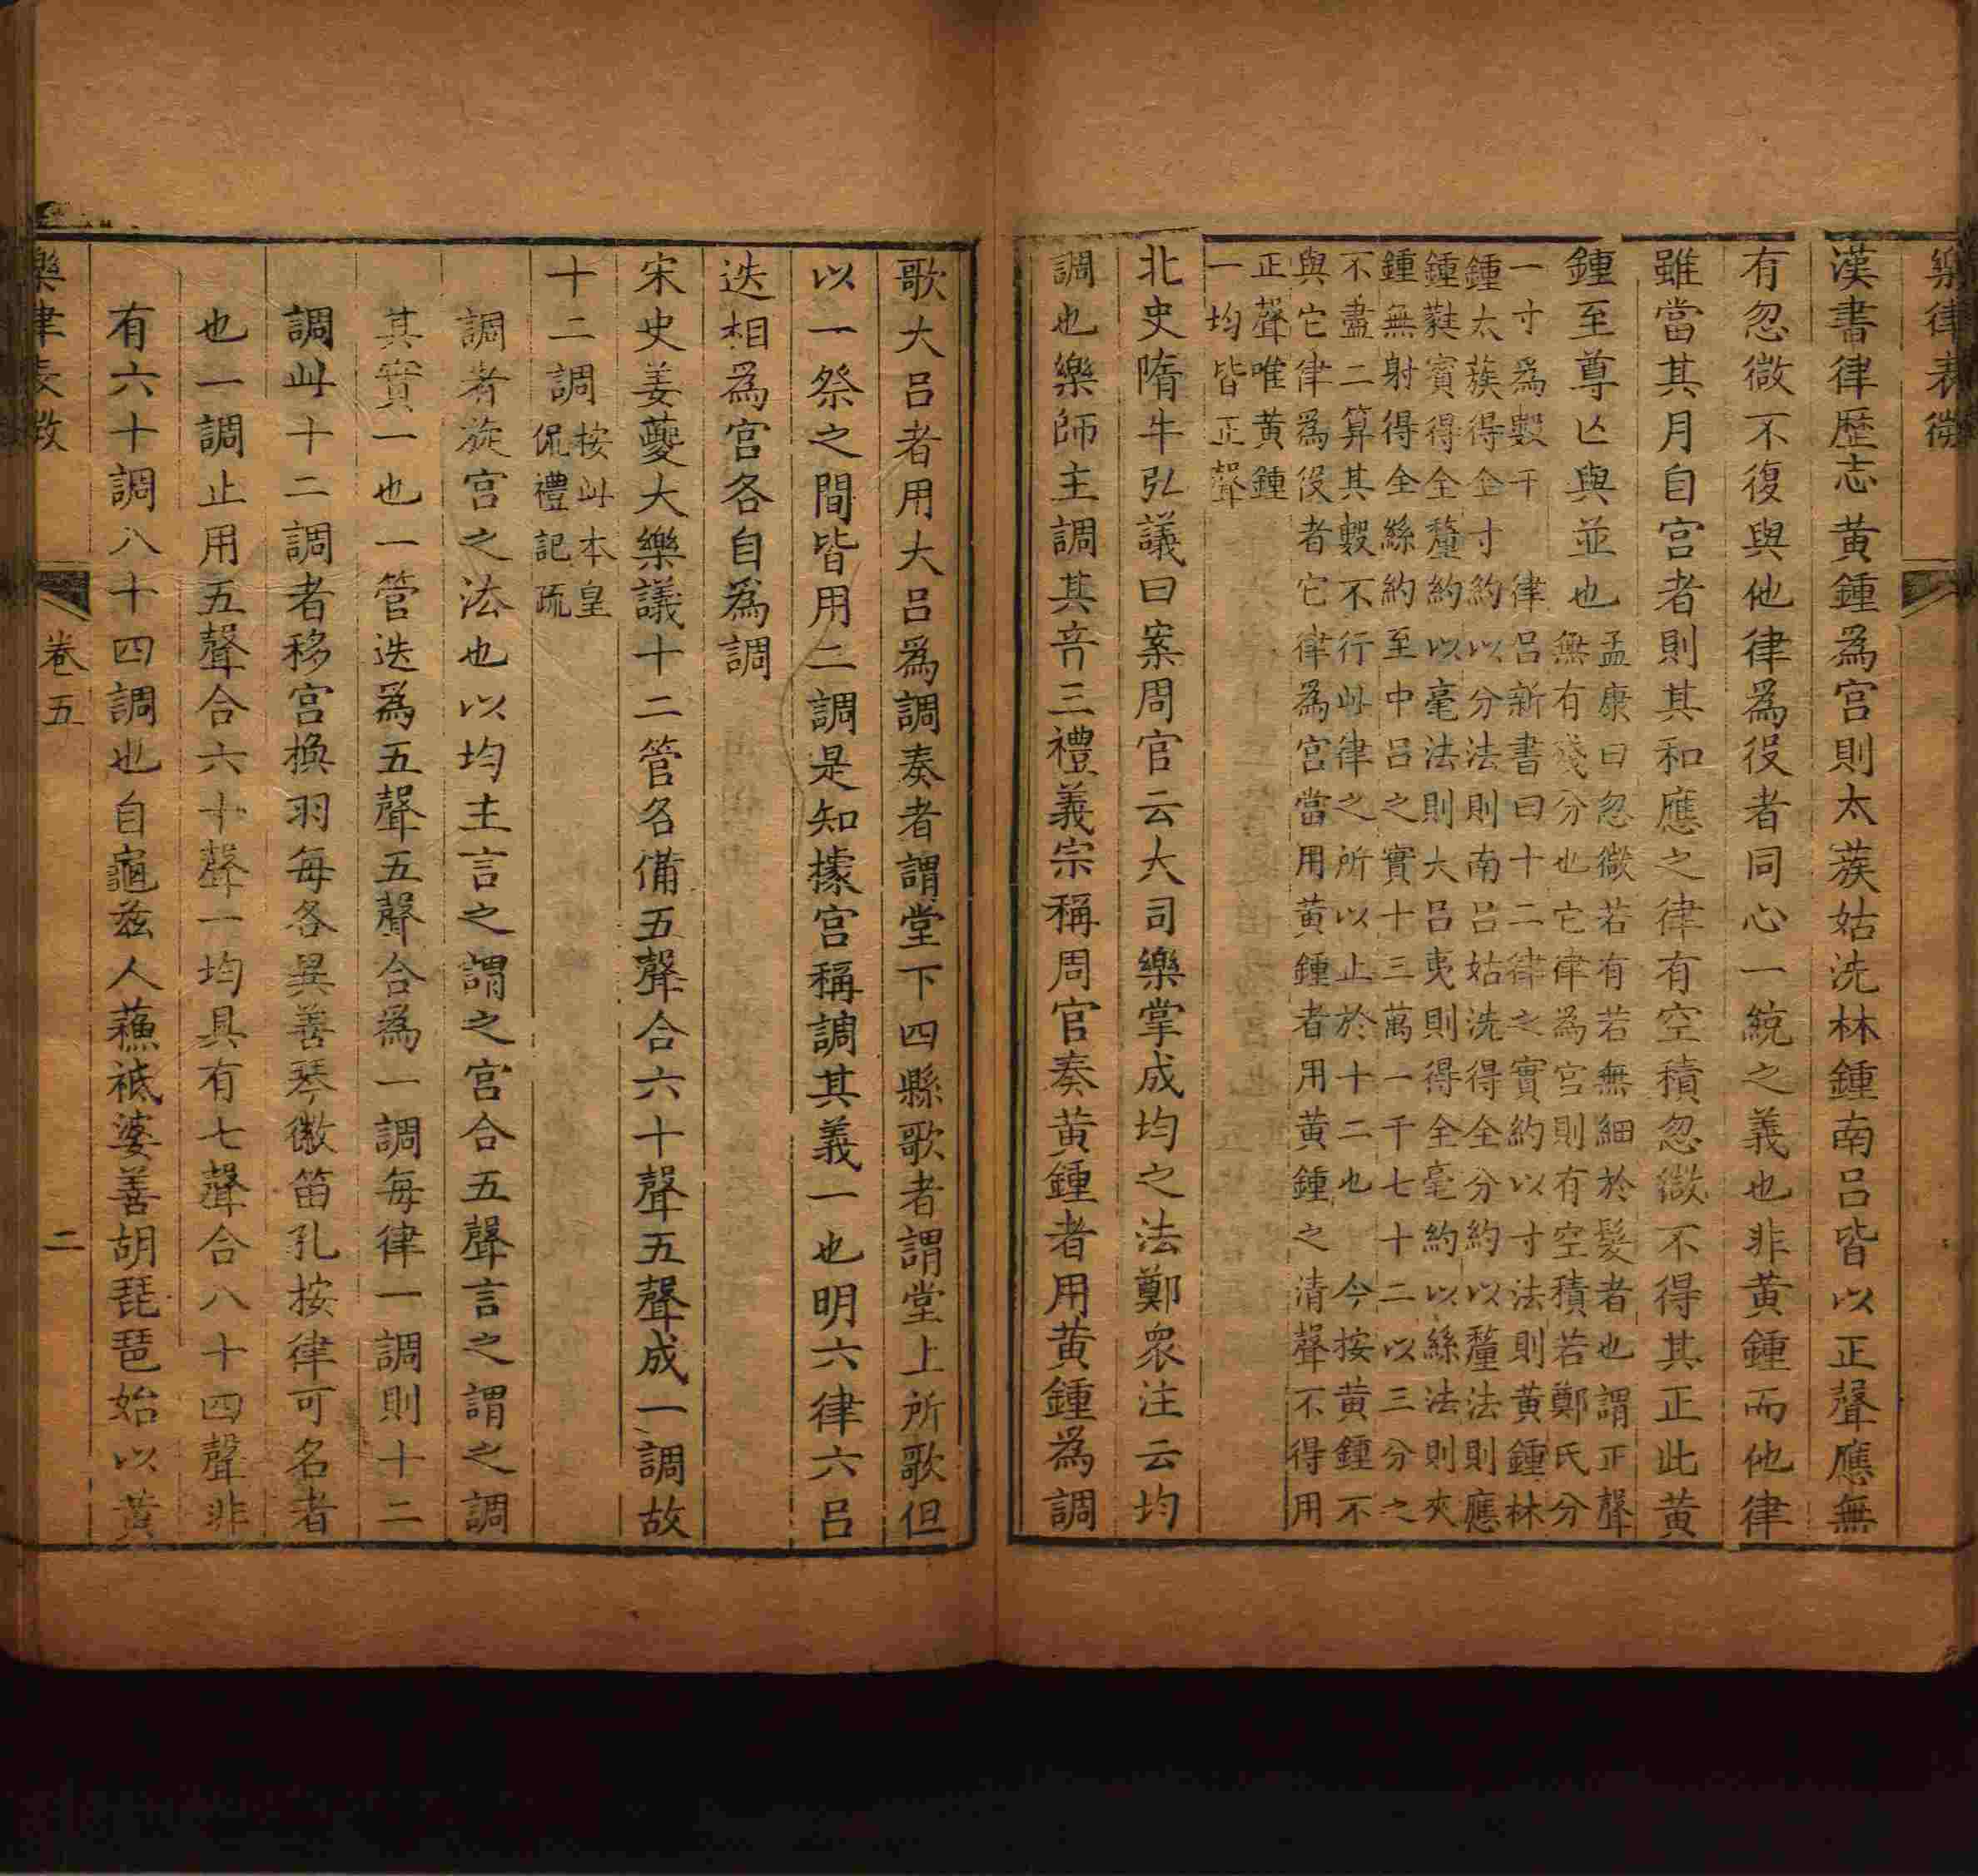 樂律表微
漢書律歷志黃鍾爲宮則太蔟姑洗林鍾南呂皆以正聲應無
有忽微不復與他律爲役者同心一統之義也非黃鍾而他律
雖當其月自宮者則其和應之律有空積忽微不得其正此黃
鍾至尊亾與並也
孟康曰忽微若有若無細於髮者也謂正聲
無有殘分也它律為宮則有空積若鄭氏分
一寸為數千 律呂新書曰十二律之實約以寸法則黃鍾林
鍾太蔟得全寸約以分法則南呂姑洗得全分約以釐法則應
鍾蕤賓得全釐約以毫法則大呂夷則得全毫約以絲法則夾
鍾無射得全絲約至中呂之實十三萬一千七十二以三分之
不盡二算其數不行此律之所以止於十二也 今按黃鍾不
與它律為役者它律為宮當用黃鍾者用黃鍾之清聲不得用
正聲唯黃鍾
一均皆正聲
北史隋牛弘議曰案周官云大司樂掌成均之法鄭眾注云均
調也樂師主調其音三禮義宗稱周官奏黃鍾者用黃鍾爲調
歌大呂者用大呂爲調奏者謂堂下四縣歌者謂堂上所歌但
以一祭之間皆用二調是知據宮稱調其義一也明六律六呂
迭相爲宮各自爲調
宋史姜夔大樂議十二管各備五聲合六十聲五聲成一調故
十二調
按此本皇
侃禮記疏
調者旋宮之法也以均主言之謂之宮合五聲言之謂之調
其實一也一管迭爲五聲五聲合爲一調每律一調則十二
調此十二調者移宮換羽每各異善琴徽笛孔按律可名者
也一調止用五聲合六十聲一均具有七聲合八十四聲非
有六十調八十四調也自龜茲人蘇祗婆善胡琵琶始以黃
樂律表微
卷五
二